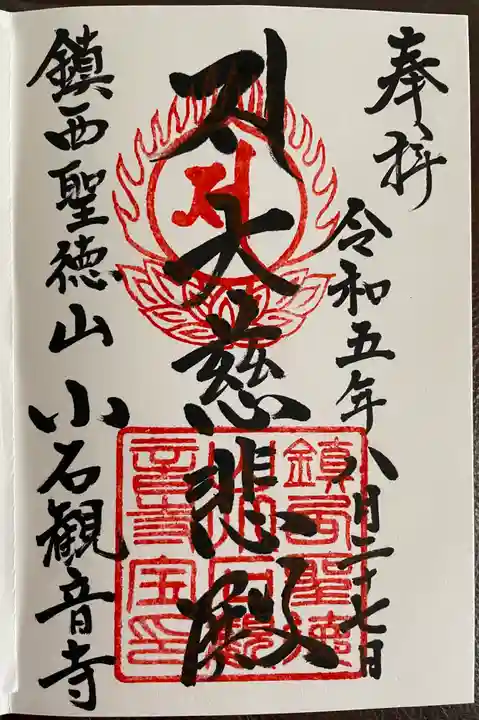 奉拝
令和五年八月二十七日
大慈悲殿
鎮西聖徳山 小石観音寺
鎮西聖徳